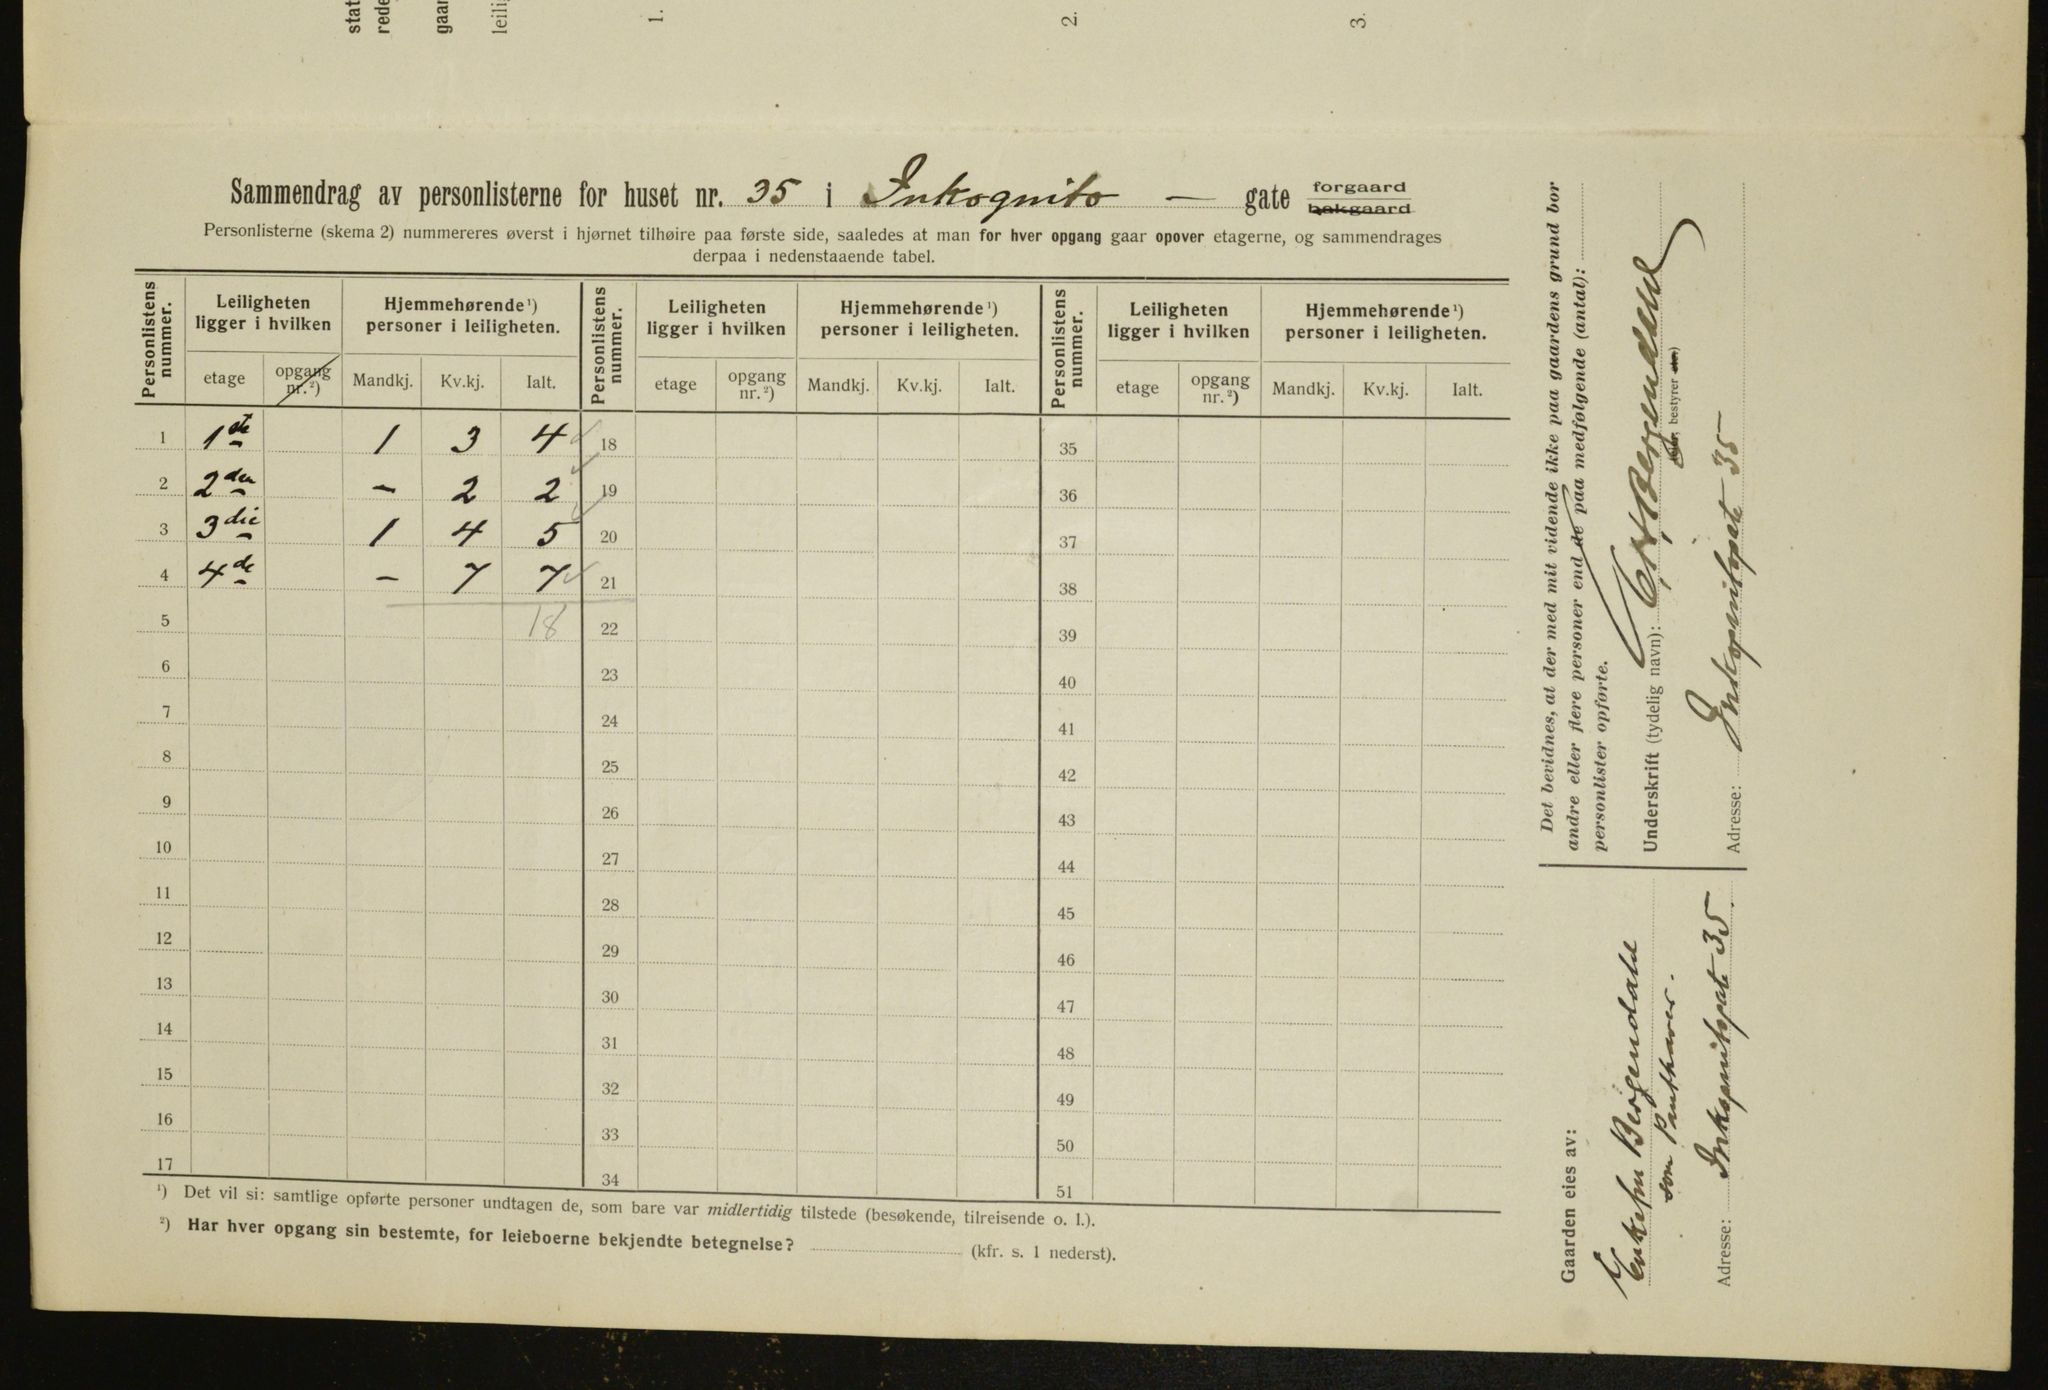 stat
rede
gaar
leilig
1.
2.
3.
Sammendrag av personlisterne for huset nr. 35 i Inkognito — gate forgaard
bakgaard
Personlisterne (skema 2) nummereres øverst i hjørnet tilhøire paa første side, saaledes at man for hver opgang gaar opover etagerne, og sammendrages
derpaa i nedenstaaende tabel.
Personlistens nummer. Leiligheten ligger i hvilken Hjemmehørende ¹) personer i leiligheten. Personlistens nummer. Leiligheten ligger i hvilken Hjemmehørende ¹) personer i leiligheten. Personlistens nummer. Leiligheten ligger i hvilken Hjemmehørende ¹) personer i leiligheten.
etage opgang nr. ²) Mandkj. Kv.kj. Ialt. etage opgang nr. ²) Mandkj. Kv.kj. Ialt. etage opgang nr. ²) Mandkj. Kv.kj. Ialt.
1 1ste 1 3 4 18 35
2 2den — 2 2 19 36
3 3die 1 4 5 20 37
4 4de — 7 7 21 38
5 18 22 39
6 23 40
7 24 41
8 25 42
9 26 43
10 27 44
11 28 45
12 29 46
13 30 47
14 31 48
15 32 49
16 33 50
17 34 51
¹) Det vil si: samtlige opførte personer undtagen de, som bare var midlertidig tilstede (besøkende, tilreisende o. l.).
²) Har hver opgang sin bestemte, for leieboerne bekjendte betegnelse? (kfr. s. 1 nederst).
Det bevidnes, at der med mit vidende ikke paa gaardens grund bor
andre eller flere personer end de paa medfølgende (antal):
personlister opførte.
Underskrift (tydelig navn): Bergendahl
bestyrer etc.)
Adresse: Inkognitogate 35
Gaarden eies av:
Enkefru Bergendahl
som Panthaver.
Adresse: Inkognitogate 35.